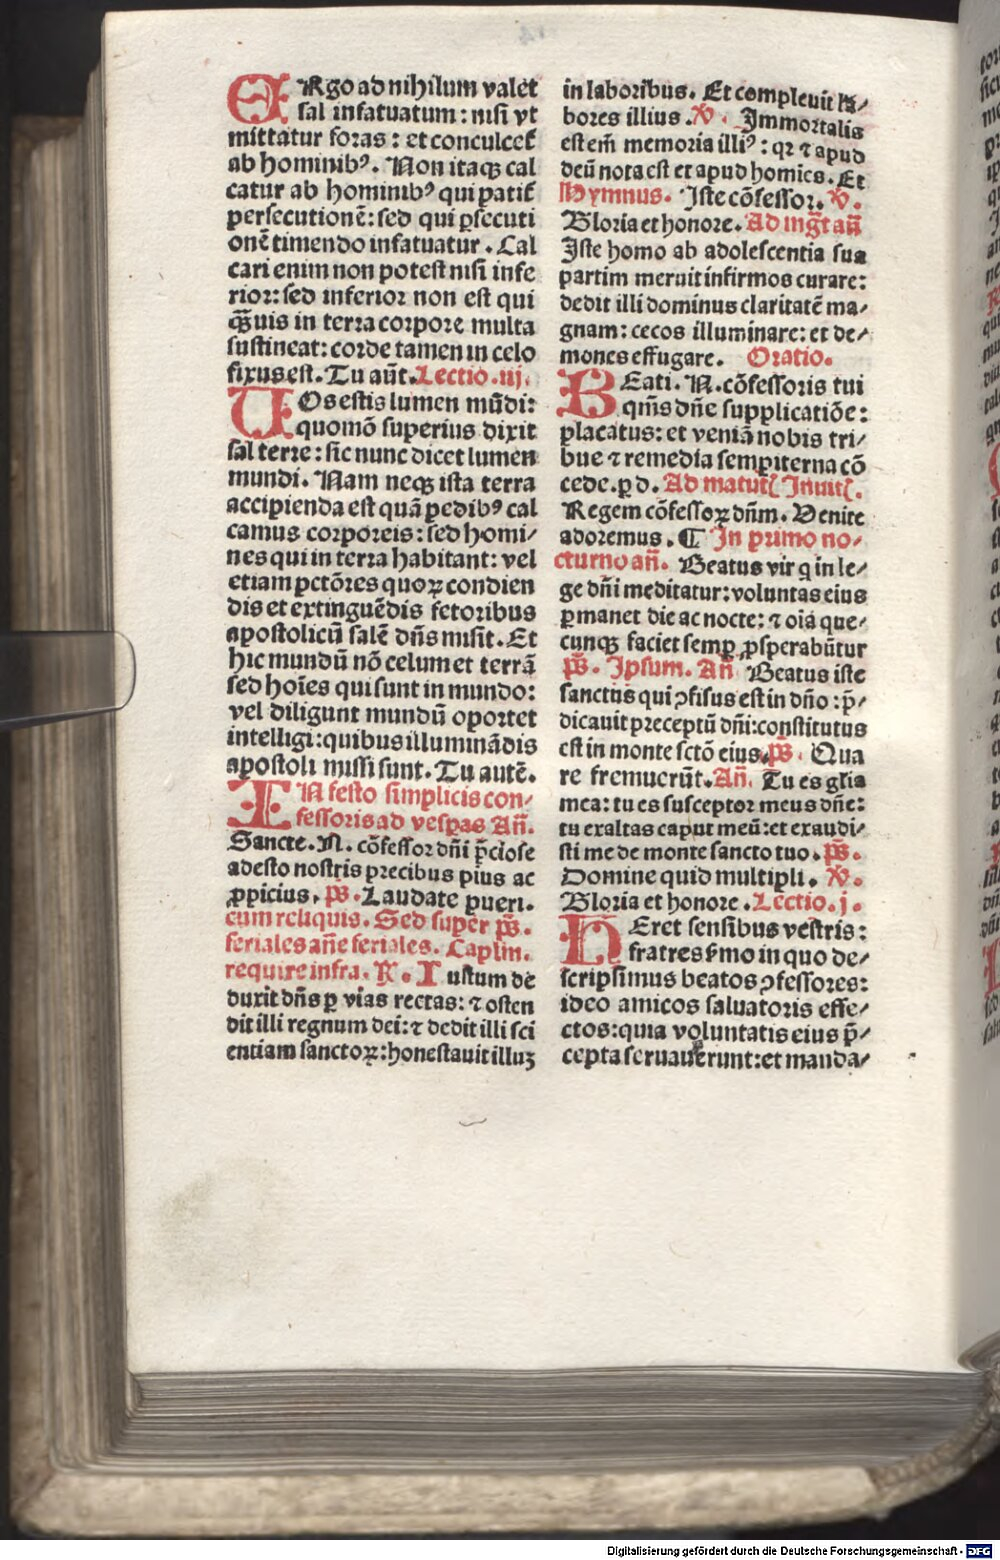 ERgo ad nihilum valet
sal infatuatum: nisi vt
mittatur foras: et conculcet᷑
ab hominibꝰ. Non itaqꝫ cal
catur ab hominibꝰ qui patit᷑
persecutionē: sed qui ꝑsecuti
onē timendo infatuatur. Cal
cari enim non potest nisi infe
rior: sed inferior non est qui
q̄uis in terra corpore multa
sustineat: corde tamen in celo
fixus est. Tu aūt. Lectio .iij.
VOs estis lumen mūdi:
quomō superius dixit
sal terre: sic nunc dicet lumen
mundi. Nam neqꝫ ista terra
accipienda est quā pedibꝰ cal
camus corporeis: sed homi⸗
nes qui in terra habitant: vel
etiam pctōres quoꝝ condien
dis et extinguēdis fetoribus
apostolicū salē dn̄s misit. Et
hic mundū nō celum et terrā
sed hoīes qui sunt in mundo:
vel diligunt mundū oportet
intelligi: quibus illuminādis
apostoli missi sunt. Tu autē.
IN festo simplicis con⸗
fessoris ad vesꝑas Añ.
Sancte. N. cōfessor dn̄i p̄ciose
adesto nostris precibus pius ac
ꝓpicius. p̄s. Laudate pueri.
cum reliquis. Sed super p̄s.
feriales añe feriales. Caplm.
require infra. R. Iustum de
duxit dn̄s ꝑ vias rectas: ⁊ osten
dit illi regnum dei: ⁊ dedit illi sci
entiam sanctoꝝ: honestauit illuꝫ
in laboribus. Et compleuit la⸗
bores illius. V. Immortalis
est em̄ memoria illiꝰ: qꝛ ⁊ apud
deū nota est et apud homies. Et
Hymnus. Iste cōfessor. V.
Gloria et honore. Ad mgt̄ añ
Iste homo ab adolescentia sua
partim meruit infirmos curare:
dedit illi dominus claritatē ma⸗
gnam: cecos illuminare: et de⸗
mones effugare. Oratio.
BEati. N. cōfessoris tui
qm̄s dn̄e supplicatiōe:
placatus: et veniā nobis tri⸗
bue ⁊ remedia sempiterna cō
cede. ꝑ d. Ad matut̄. Inuit̄.
Regem cōfessoꝝ dn̄m. Venite
adoremus. ¶ In primo no⸗
cturno añ. Beatus vir q in le⸗
ge dn̄i meditatur: voluntas eius
ꝑmanet die ac nocte: ⁊ oīa que⸗
cunqꝫ faciet semꝑ ꝓsperabūtur
p̄s. Ipsum. Añ Beatus iste
sanctus qui ꝯfisus est in dn̄o: p̄⸗
dicauit preceptū dn̄i: constitutus
est in monte sctō eius. p̄s. Qua
re fremuerūt. Añ. Tu es glīa
mea: tu es susceptor meus dn̄e:
tu exaltas caput meū: et exaudi⸗
sti me de monte sancto tuo. p̄s.
Domine quid multipli. V.
Gloria et honore. Lectio .j.
HEret sensibus vestris:
fratres sermo in quo de⸗
scripsimus beatos ꝯfessores:
ideo amicos saluatoris effe⸗
ctos: quia voluntatis eius p̄⸗
cepta seruauerunt: et manda⸗
Digitalisierung gefördert durch die Deutsche Forschungsgemeinschaft - DFG